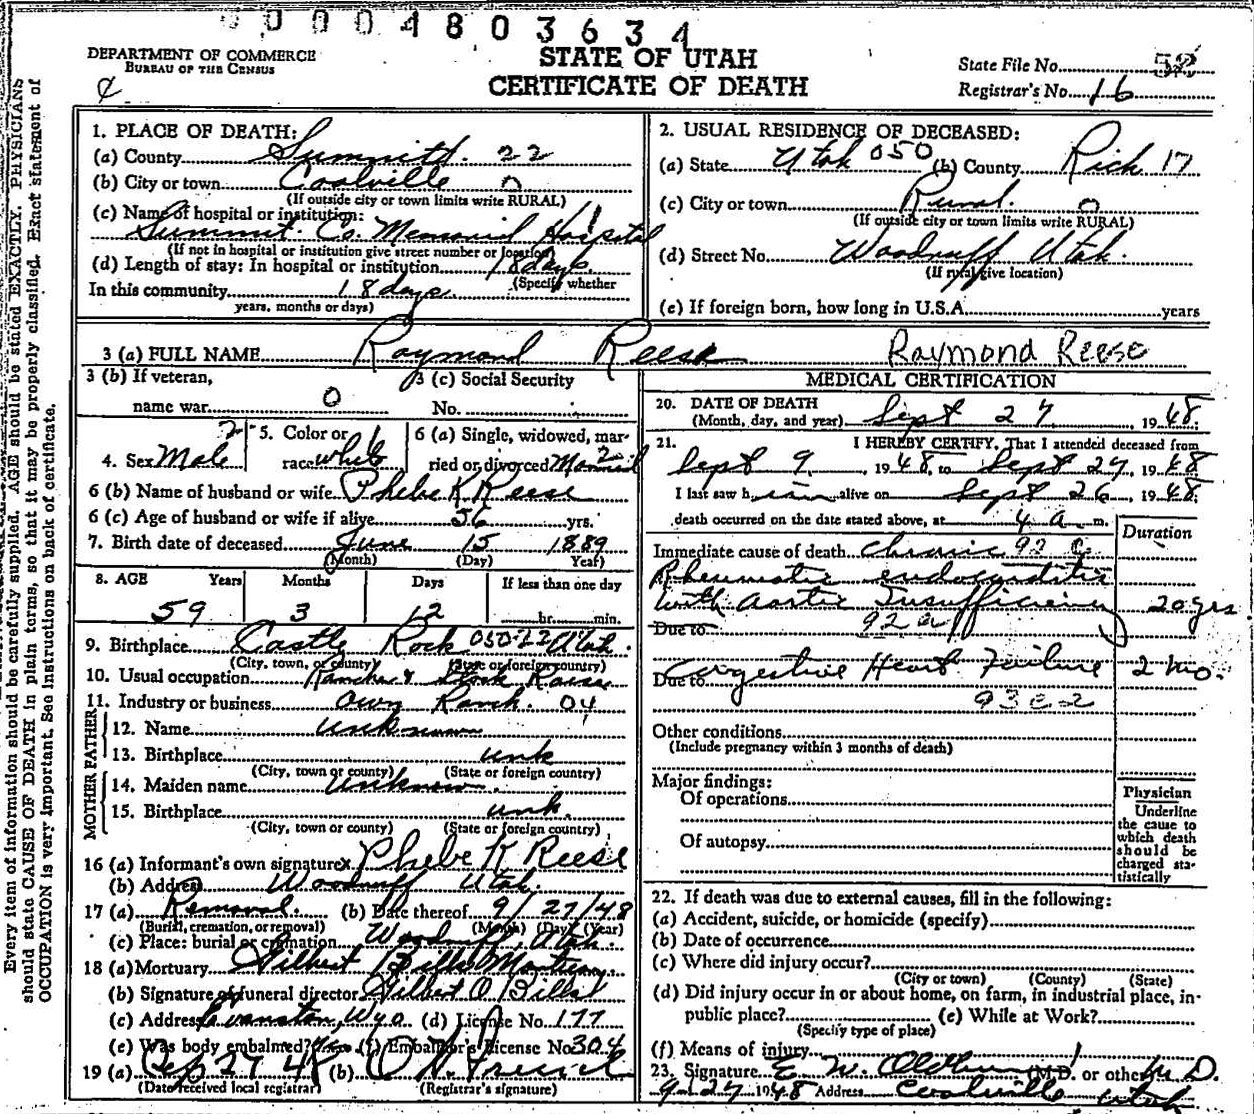 0004803634
DEPARTMENT OF COMMERCE
BUREAU OF THE CENSUS
STATE OF UTAH
CERTIFICATE OF DEATH
State File No. 52
Registrar's No. 16
Every item of information should be carefully supplied. AGE should be stated EXACTLY. PHYSICIANS
should state CAUSE OF DEATH in plain terms, so that it may be properly classified. Exact statement of
OCCUPATION is very important. See instructions on back of certificate.
1. PLACE OF DEATH:
(a) County Summit 22
(b) City or town Coalville 0
(If outside city or town limits write RURAL)
(c) Name of hospital or institution: 1
Summit Co. Memorial Hospital
(If not in hospital or institution give street number or location)
(d) Length of stay: In hospital or institution 18 days
(Specify whether
In this community 18 days
years, months or days)
2. USUAL RESIDENCE OF DECEASED:
(a) State Utah 050 (b) County Rich 17
(c) City or town Rural 0
(If outside city or town limits write RURAL)
(d) Street No. Woodruff Utah.
(If rural give location)
(e) If foreign born, how long in U.S.A. years
3 (a) FULL NAME Raymond Reese Raymond Reese
3 (b) If veteran,
name war 0
3 (c) Social Security
No.
4. Sex Male 2
5. Color or
race white 1
6 (a) Single, widowed, mar-
ried or divorced Married 2
6 (b) Name of husband or wife Phebe K Reese
6 (c) Age of husband or wife if alive 56 yrs.
7. Birth date of deceased June 15 1889
(Month) (Day) Year)
8. AGE Years Months Days If less than one day
59 3 12 hr. min.
9. Birthplace Castle Rock 050-22 Utah.
(City, town, or county) (State or foreign country)
10. Usual occupation Rancher & Stock Raiser
11. Industry or business Own Ranch. 04
FATHER
12. Name unknown
13. Birthplace unk
(City, town or county) (State or foreign country)
MOTHER
14. Maiden name Unknown.
15. Birthplace unk.
(City, town or county) (State or foreign country)
16 (a) Informant's own signature x Phebe K Reese
(b) Address Woodruff Utah.
17 (a) Removal. (b) Date thereof 9/27/48
(Burial, cremation, or removal) (Month) (Day) (Year)
(c) Place: burial or cremation Woodruff, Utah.
18 (a) Mortuary Gilbert Bills Mortuary
(b) Signature of funeral director Gilbert O Bills
(c) Address Evanston, Wyo. (d) License No. 177
(e) Was body embalmed? Yes (f) Embalmer's License No. 304
19 (a) Sep 27 48 (b) O
(Date received local registrar) (Registrar's signature)
MEDICAL CERTIFICATION
20. DATE OF DEATH
(Month, day, and year) Sept 27, 1948.
21. I HEREBY CERTIFY, That I attended deceased from
Sept 9, 1948, to Sept 27, 1948
I last saw him alive on Sept 26, 1948.
death occurred on the date stated above, at 4 a. m.
Duration
Immediate cause of death chronic 92 c
Rheumatic endocarditis
with Aortic Insufficiency 20 yrs
Due to 92a
Due to Congestive Heart Failure 2 mo.
93c2
Other conditions
(Include pregnancy within 3 months of death)
Major findings:
Of operations
Of autopsy
Physician
Underline
the cause to
which death
should be
charged sta-
tistically
22. If death was due to external causes, fill in the following:
(a) Accident, suicide, or homicide (specify)
(b) Date of occurrence
(c) Where did injury occur?
(City or town) (County) (State)
(d) Did injury occur in or about home, on farm, in industrial place, in-
public place? (e) While at Work?
(Specify type of place)
(f) Means of injury
23. Signature E. W. (M.D. or other) M.D.
9-27 1948 Address Coalville Utah